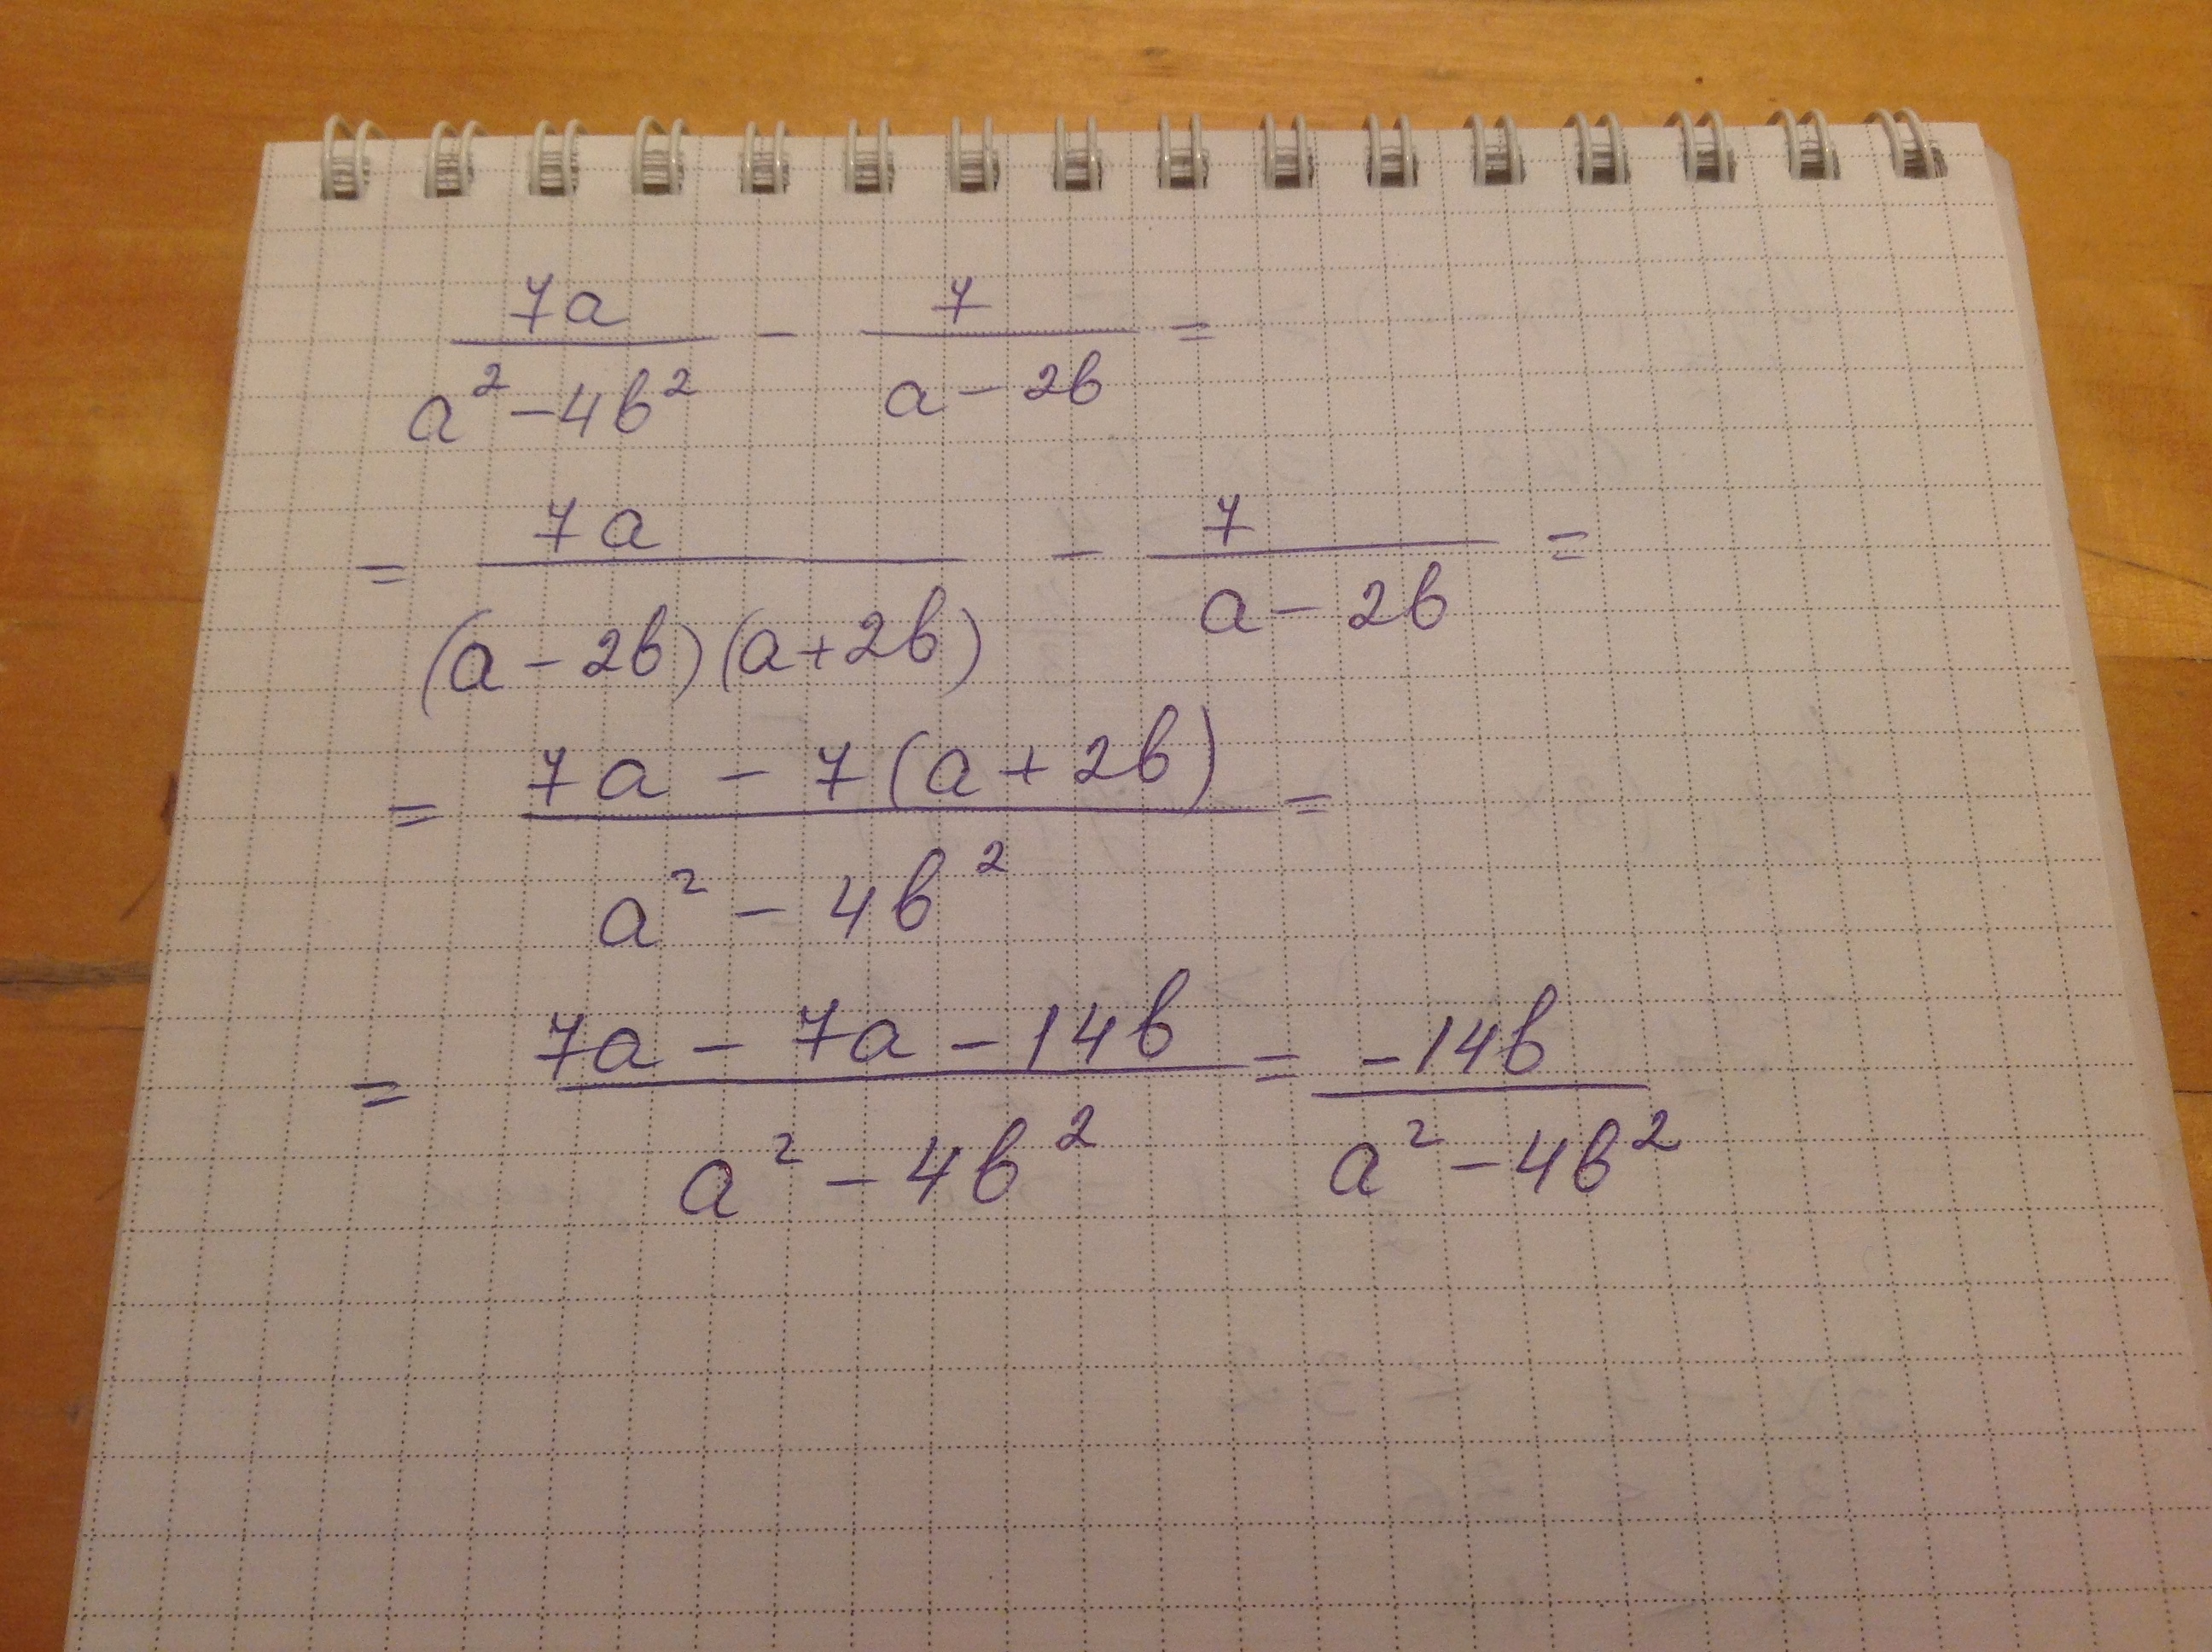 7a / a² - 4b² - 7 / a - 2b =
= 7a / (a - 2b)(a + 2b) - 7 / a - 2b =
= 7a - 7(a + 2b) / a² - 4b² =
= 7a - 7a - 14b / a² - 4b² = -14b / a² - 4b²